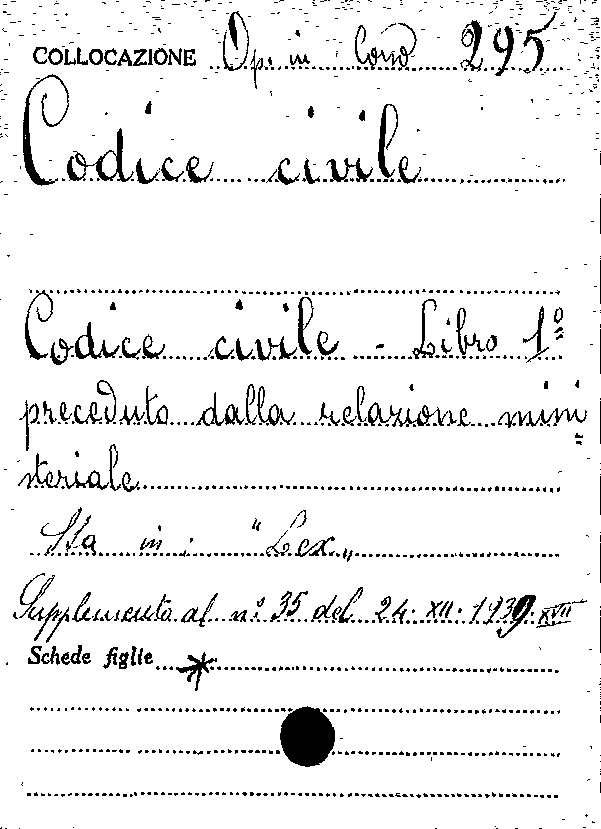 COLLOCAZIONE Op. in Cons 295
Codice civile
Codice civile - Libro 1º
preceduto dalla relazione mini
steriale
Sta in: "Lex„
Supplemento al nº 35 del 24. XII. 1939. XVII
Schede figlie *